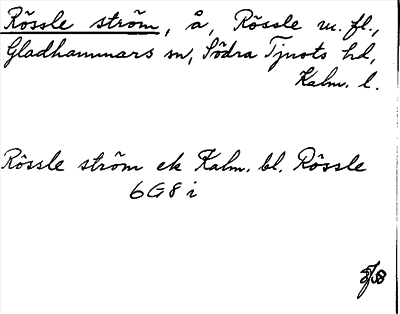 Rössle ström, å, Rössle m. fl.,
Gladhammars sn, Södra Tjusts hd,
Kalm. l.
Rössle ström ek Kalm. bl. Rössle
6G8i